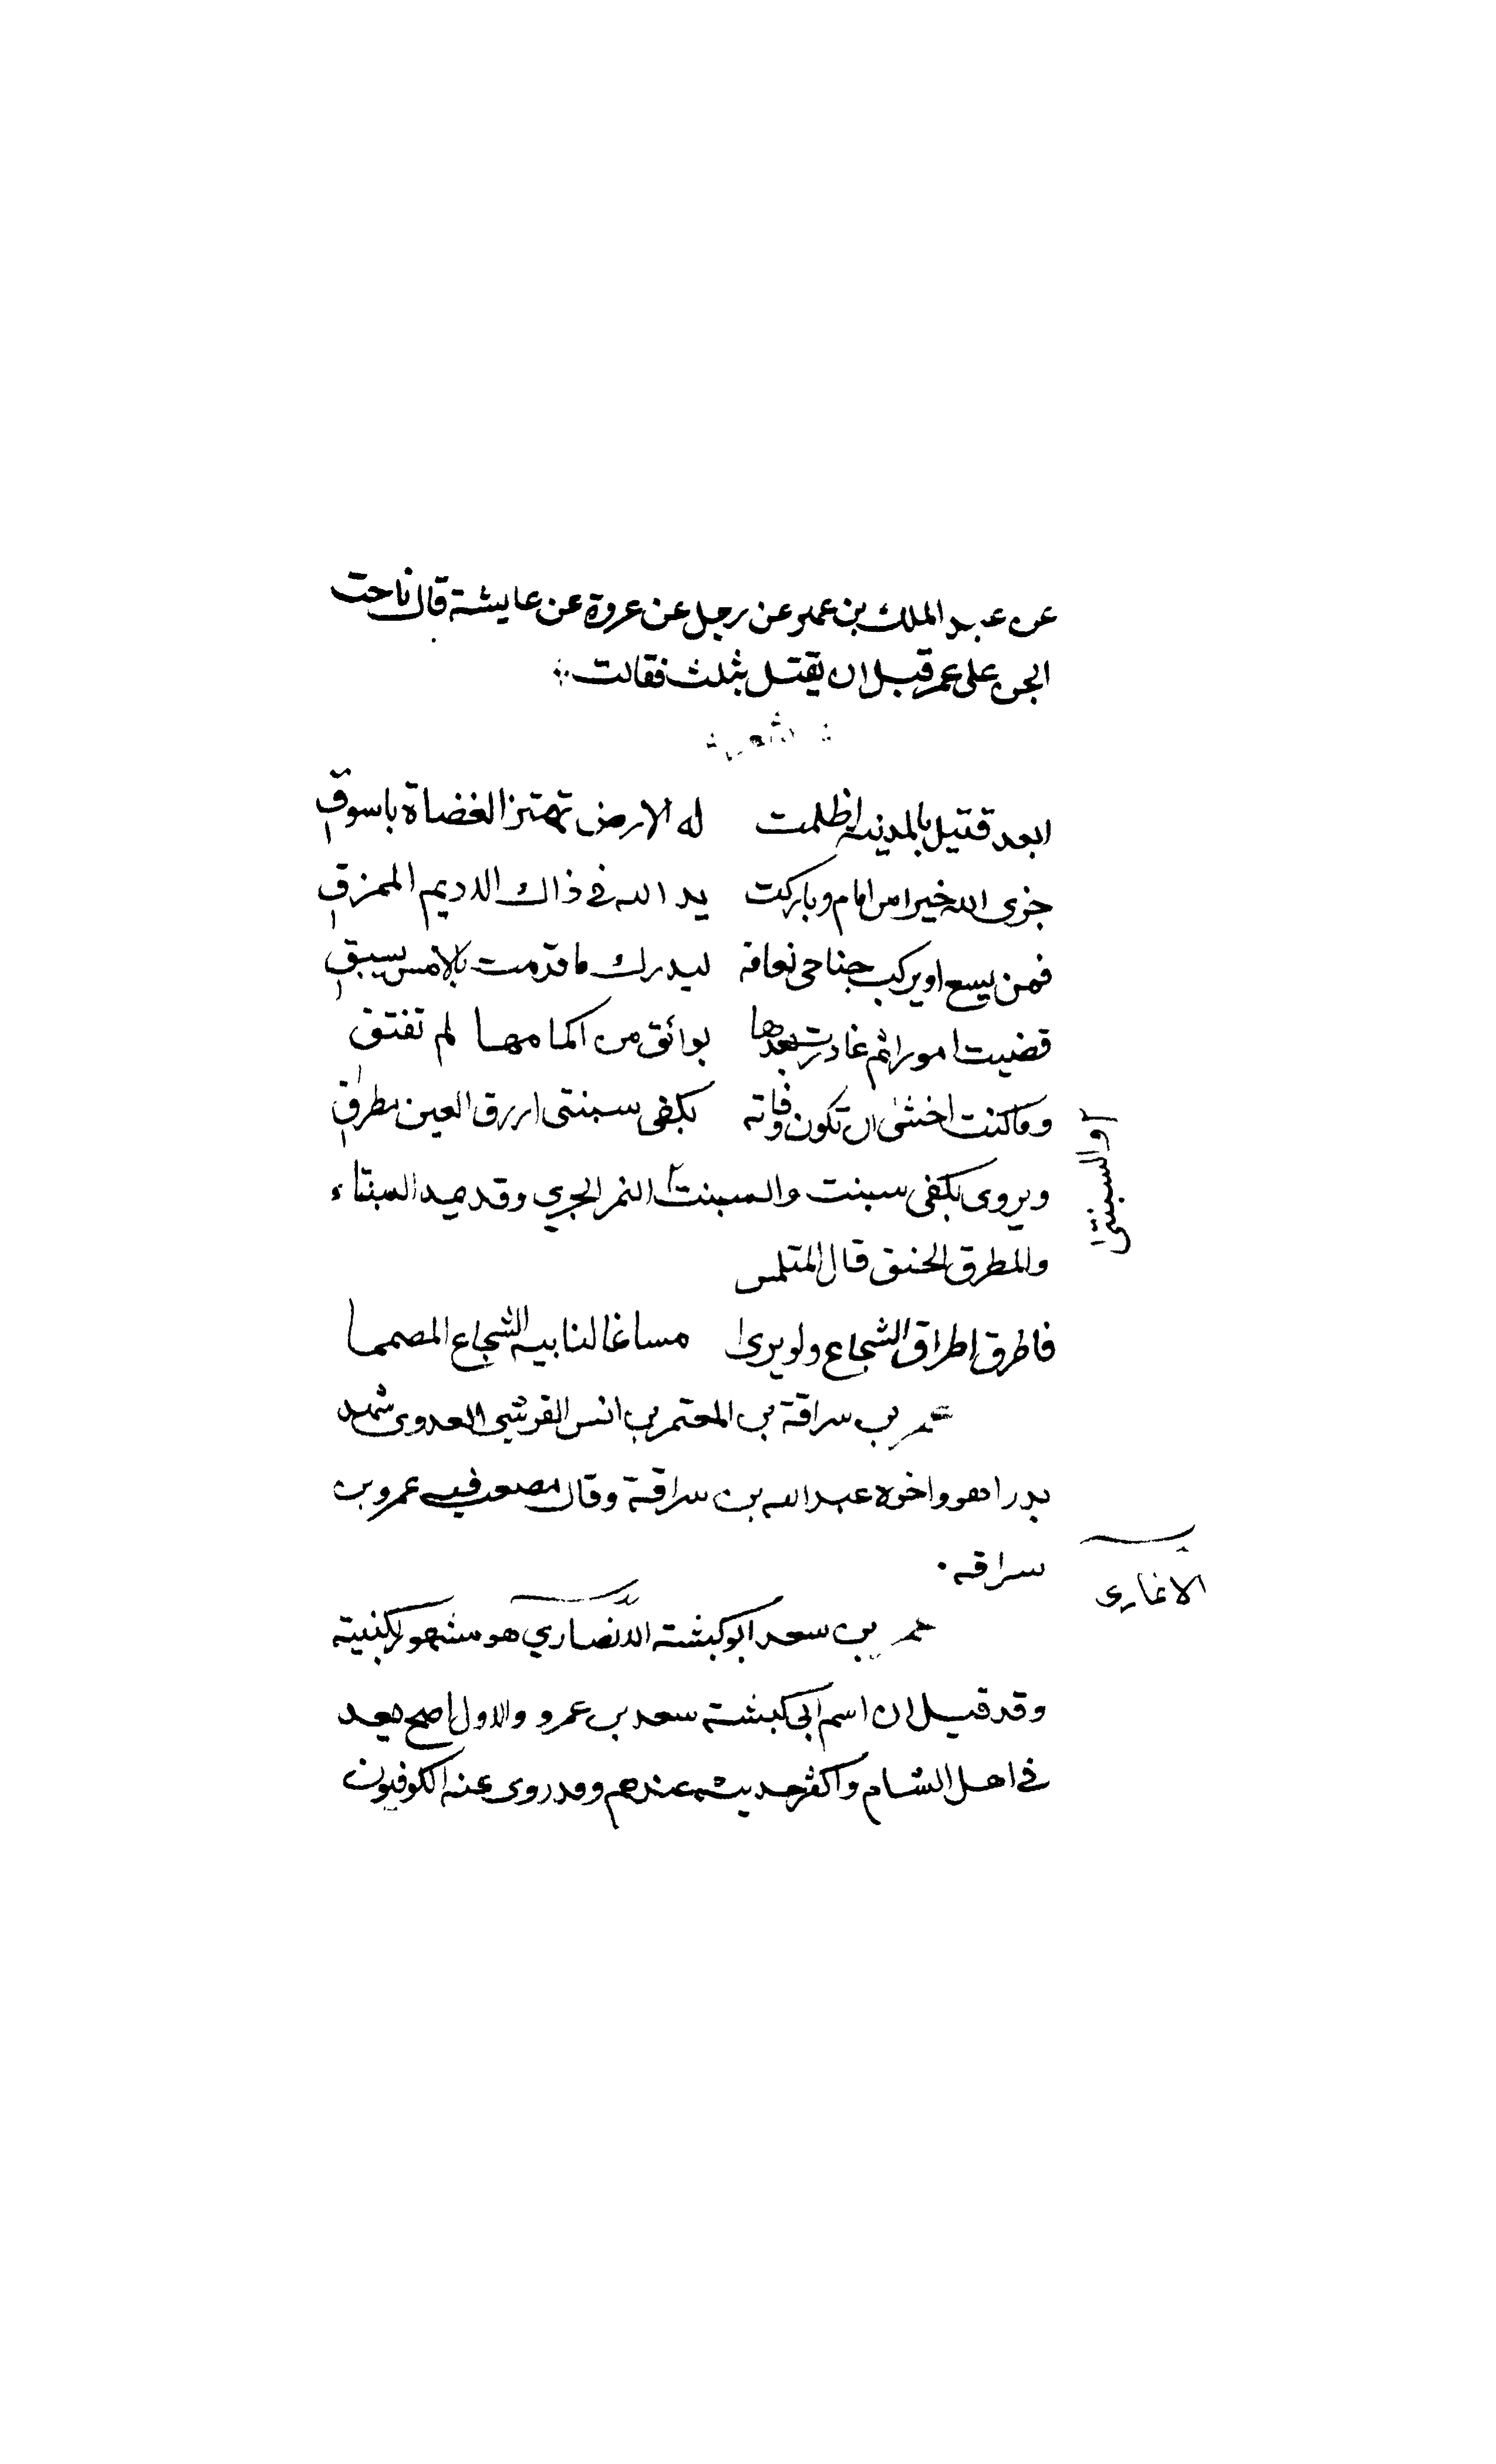 عن عبد الملك بن عمير عن رجل عن عروة عن عايشة قال ناحت
الجن على عمر قبل ان يقتل بثلث فقالت
شعر
ابعد قتيل بالمدينة اظلمت له الارض تهتز الغضاة باسوق
جزى الله خيرا من امام وباركت يد الله في ذاك الاديم الممزق
فمن يسع او يركب جناحي نعامة ليدرك ما قدمت بالامس يسبق
قضيت امورا ثم غادرت بعدها بوائق من اكمامها لم تفتق
وما كنت اخشى ان تكون وفاته بكفى سبنتى ازرق العين مطرق
ويروى بكفى سبنت والسبنتا النمر الجري وقد يمد السبنتاء
والسبنتى
والمطرق الحنق قال المتلمس
فاطرق اطراق الشجاع ولو يرى مساغا لنابيه الشجاع المصمما
عمر بن سراقة بن المعتمر بن انس القرشي العدوى شهد
بدرا هو واخوه عبد الله بن سراقة وقال مصعب فيه عمرو بن
سراقه
عمر بن سعد ابو كبشة الانصاري هو مشهور بكنيته
الانمارى
وقد قيل ان اسم ابي كبشة سعد بن عمرو والاول اصح يعد
في اهل الشام واكثر حديثه عندهم وقد روى عنه الكوفيون